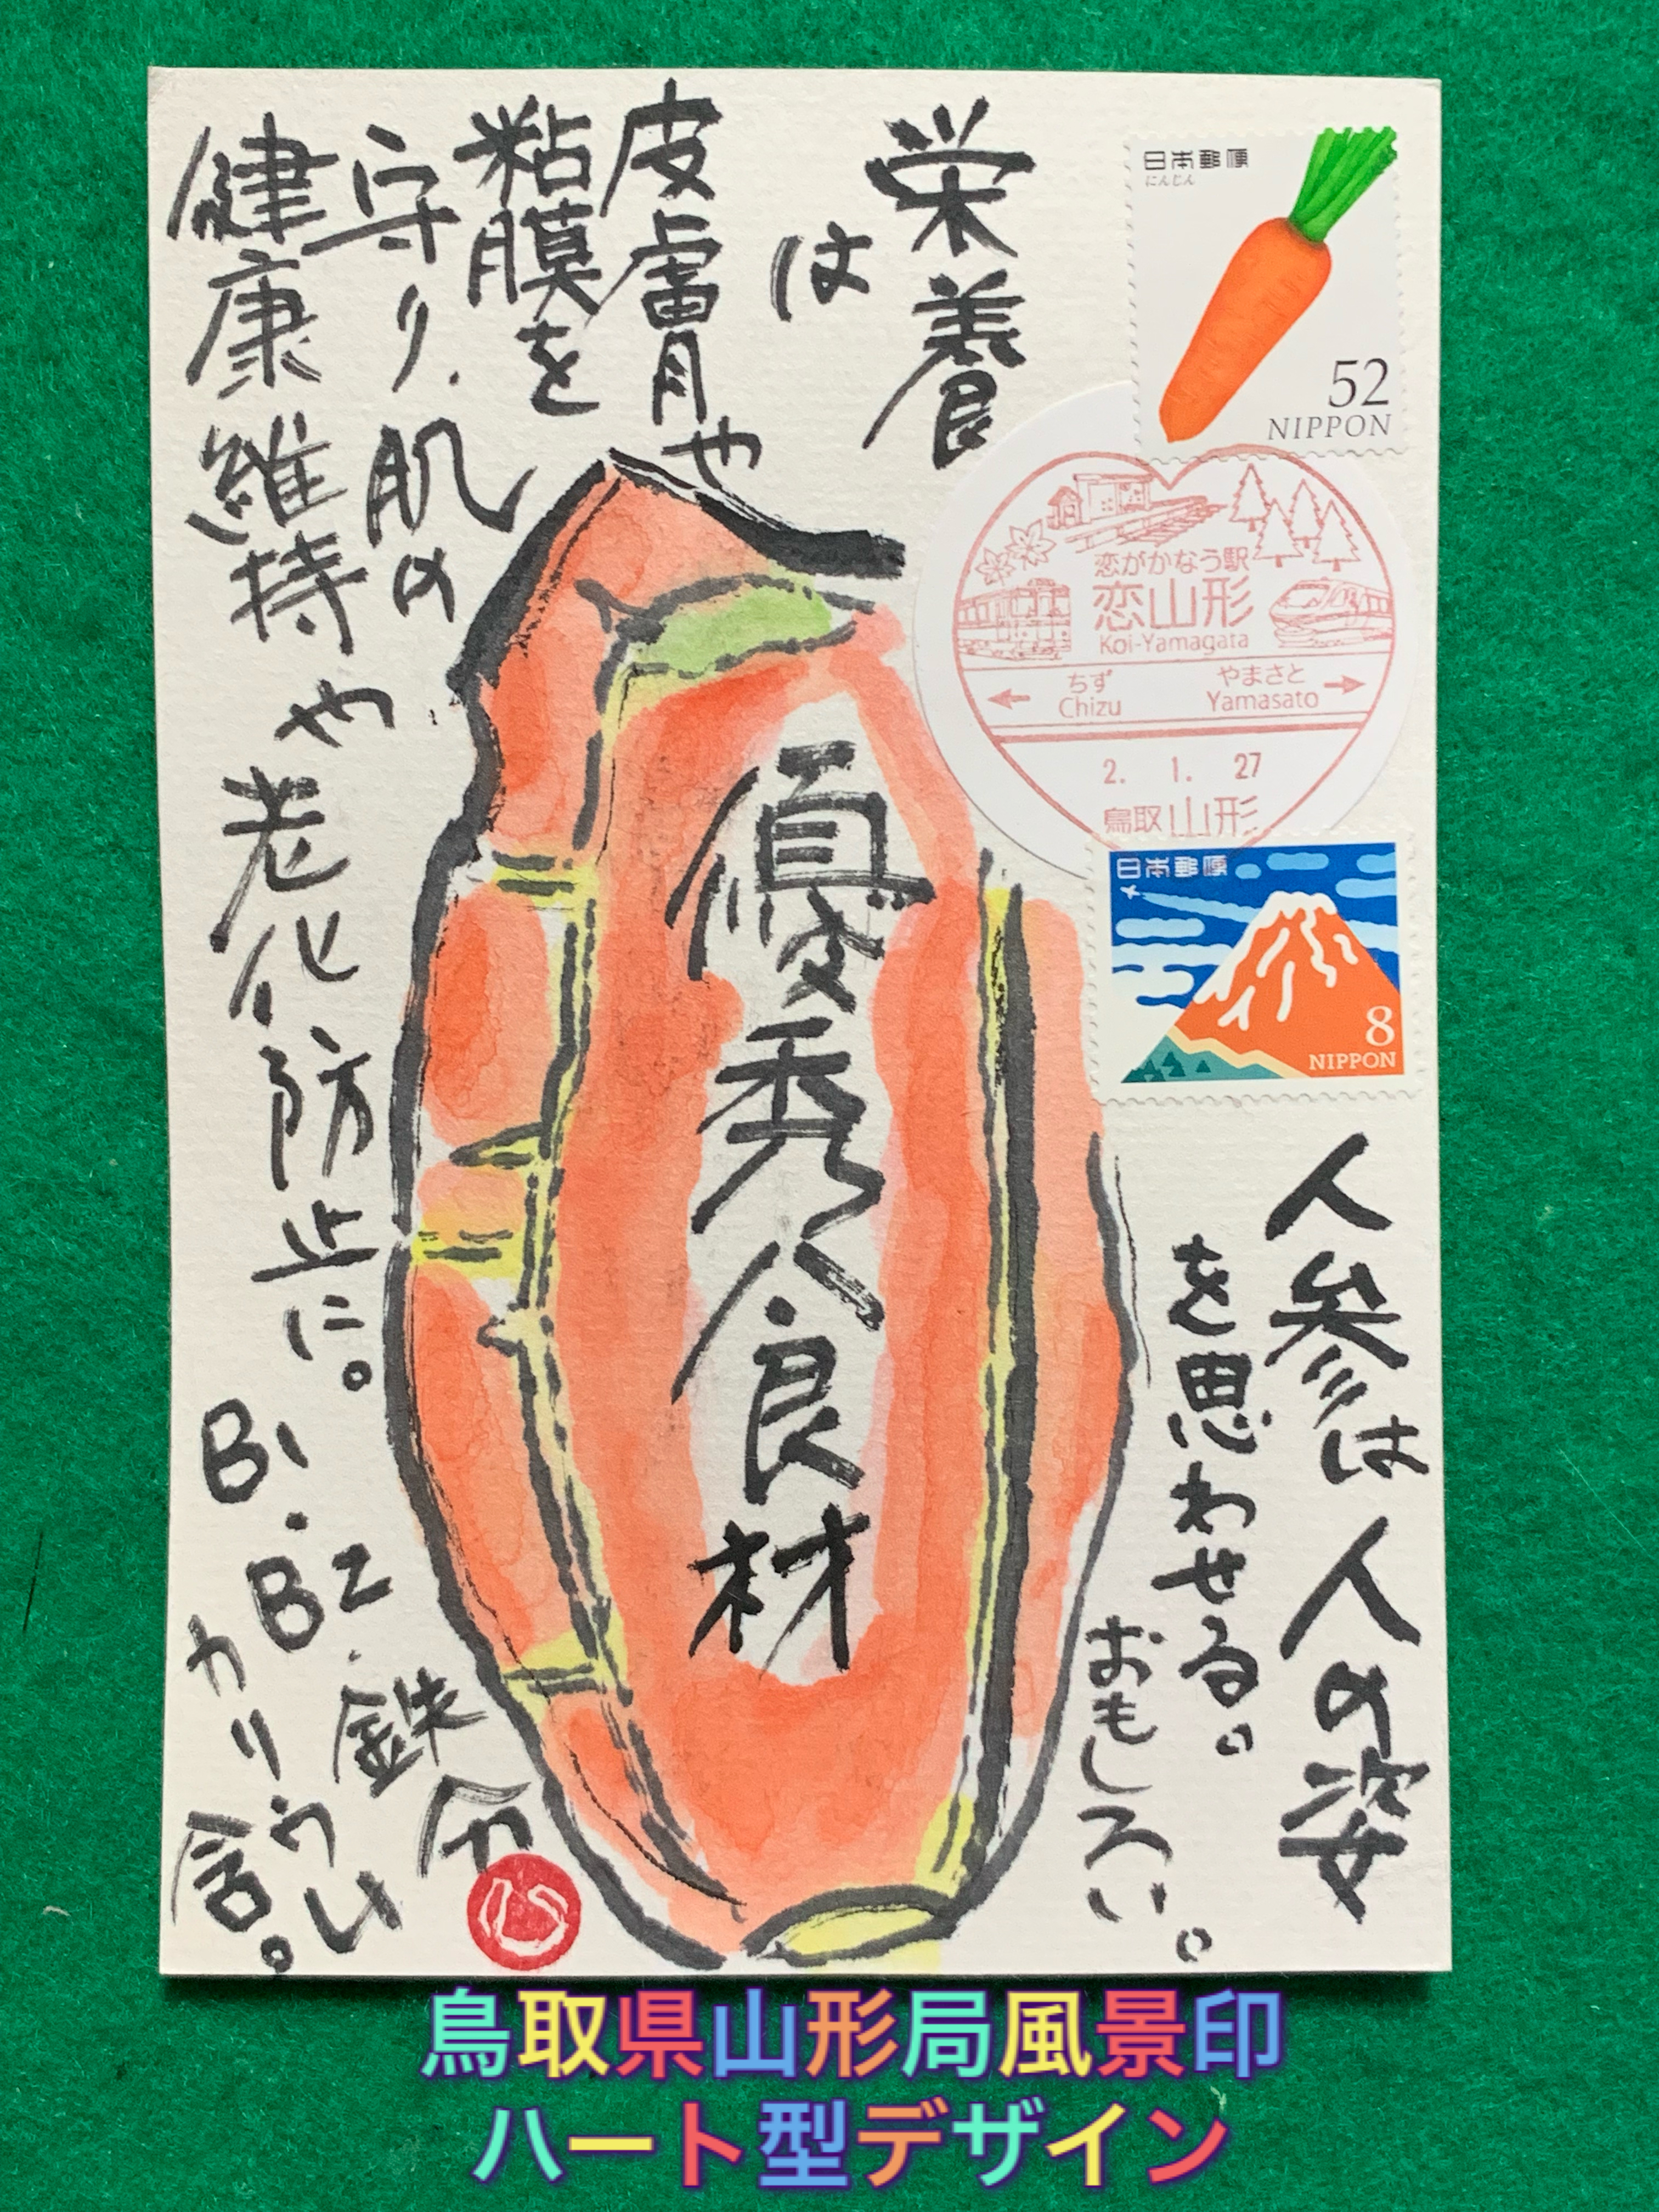 人参は人の姿
を思わせる。
おもしろい。
栄養
は
皮膚や
粘膜を
守り、肌の
健康維持や老化防止に。
B1・B2・鉄分
カリウム
含。
優秀食材
日本郵便
にんじん
52
NIPPON
恋がかなう駅
恋山形
Koi-Yamagata
ちず
Chizu
やまさと
Yamasato
2. 1. 27
鳥取 山形
日本郵便
8
NIPPON
鳥取県山形局風景印
ハート型デザイン